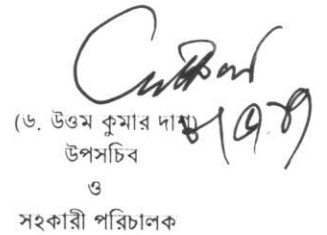 (ড. উত্তম কুমার দাশ)
উপসচিব
ও
সহকারী পরিচালক